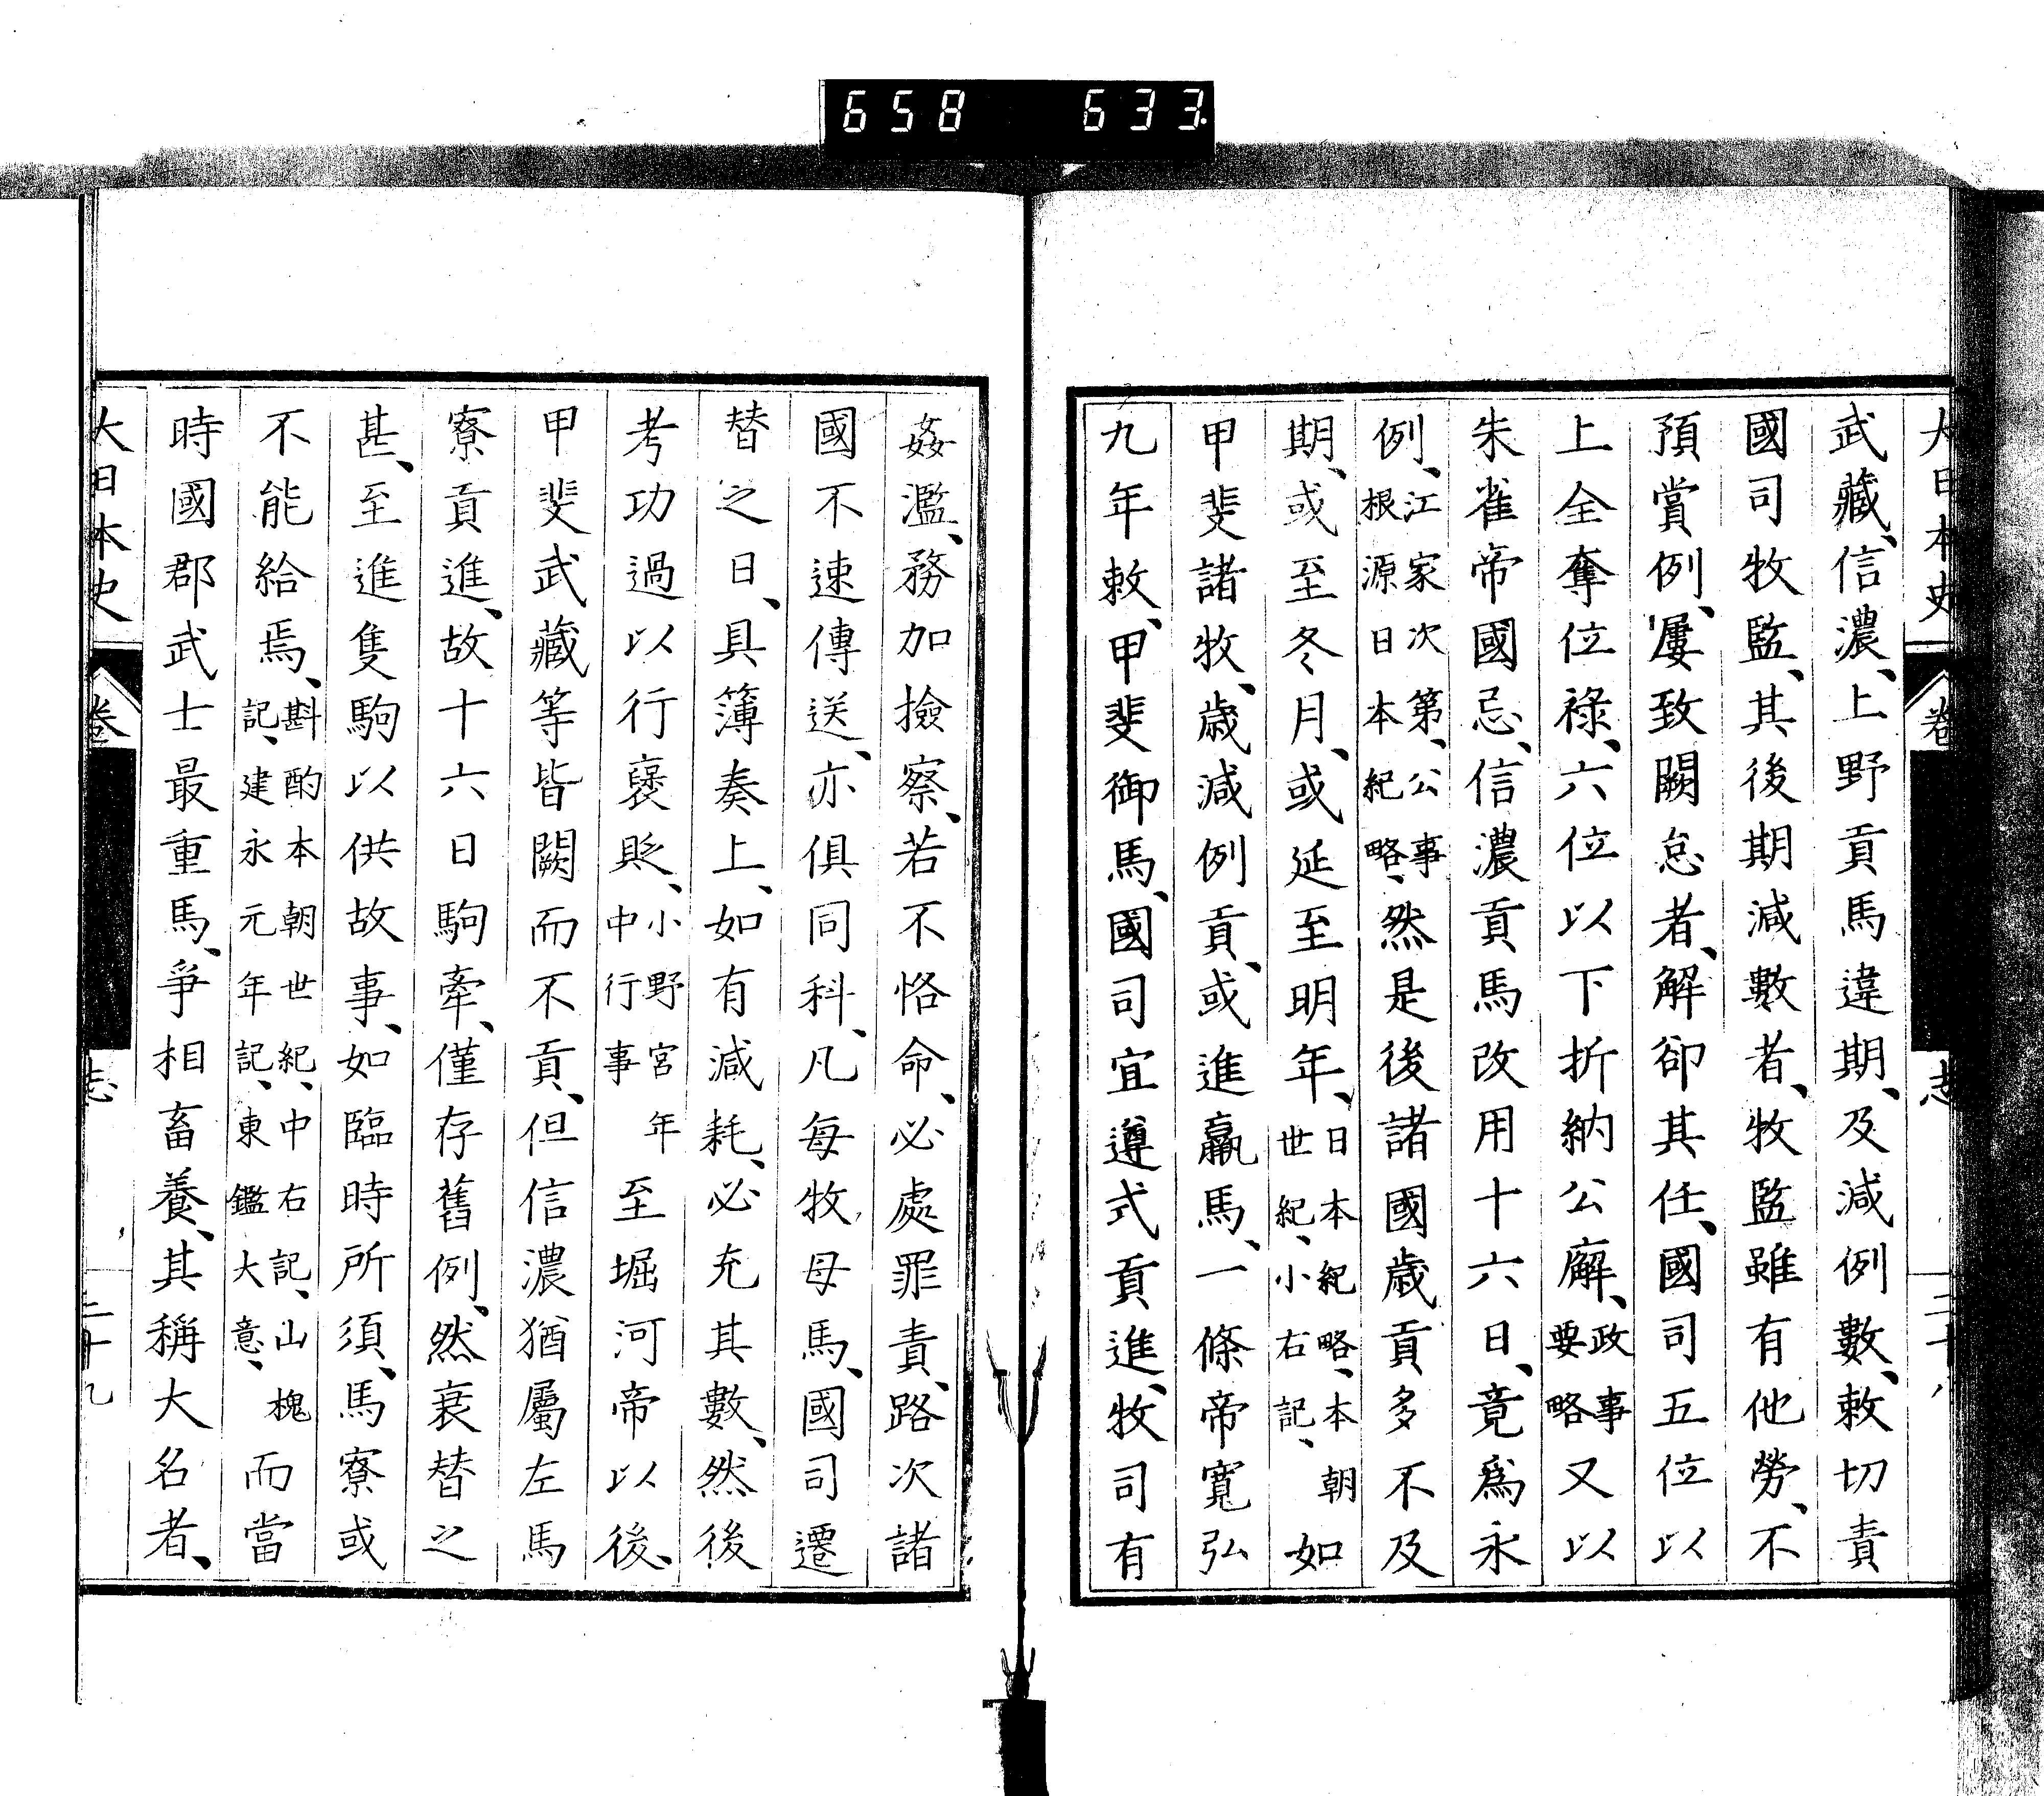 658 633
大日本史 卷 志 二十八
武藏、信濃、上野貢馬違期、及減例數、敕切責
國司牧監、其後期減數者、牧監雖有他勞、不
預賞例、屢致闕怠者、解卻其任、國司五位以
上全奪位祿、六位以下折納公廨、政事要略又以
朱雀帝國忌、信濃貢馬改用十六日、竟爲永
例、江家次第、公事根源日本紀略、然是後諸國歲貢多不及
期、或至冬月、或延至明年、日本紀略、本朝世紀、小右記、如
甲斐諸牧、歲減例貢、或進羸馬、一條帝寬弘
九年敕、甲斐御馬、國司宜遵式貢進、牧司有
姦濫、務加撿察、若不恪命、必處罪責、路次諸
國不速傳送、亦俱同科、凡每牧母馬、國司遷
替之日、具簿奏上、如有減耗、必充其數、然後
考功過以行褒貶、小野宮年中行事至堀河帝以後、
甲斐武藏等皆闕而不貢、但信濃猶屬左馬
寮貢進、故十六日駒牽、僅存舊例、然衰替之
甚、至進隻駒以供故事、如臨時所須、馬寮或
不能給焉、斟酌本朝世紀、中右記、山槐記、建永元年記、東鑑大意、而當
時國郡武士最重馬、爭相畜養、其稱大名者、
大日本史 卷 志 二十九